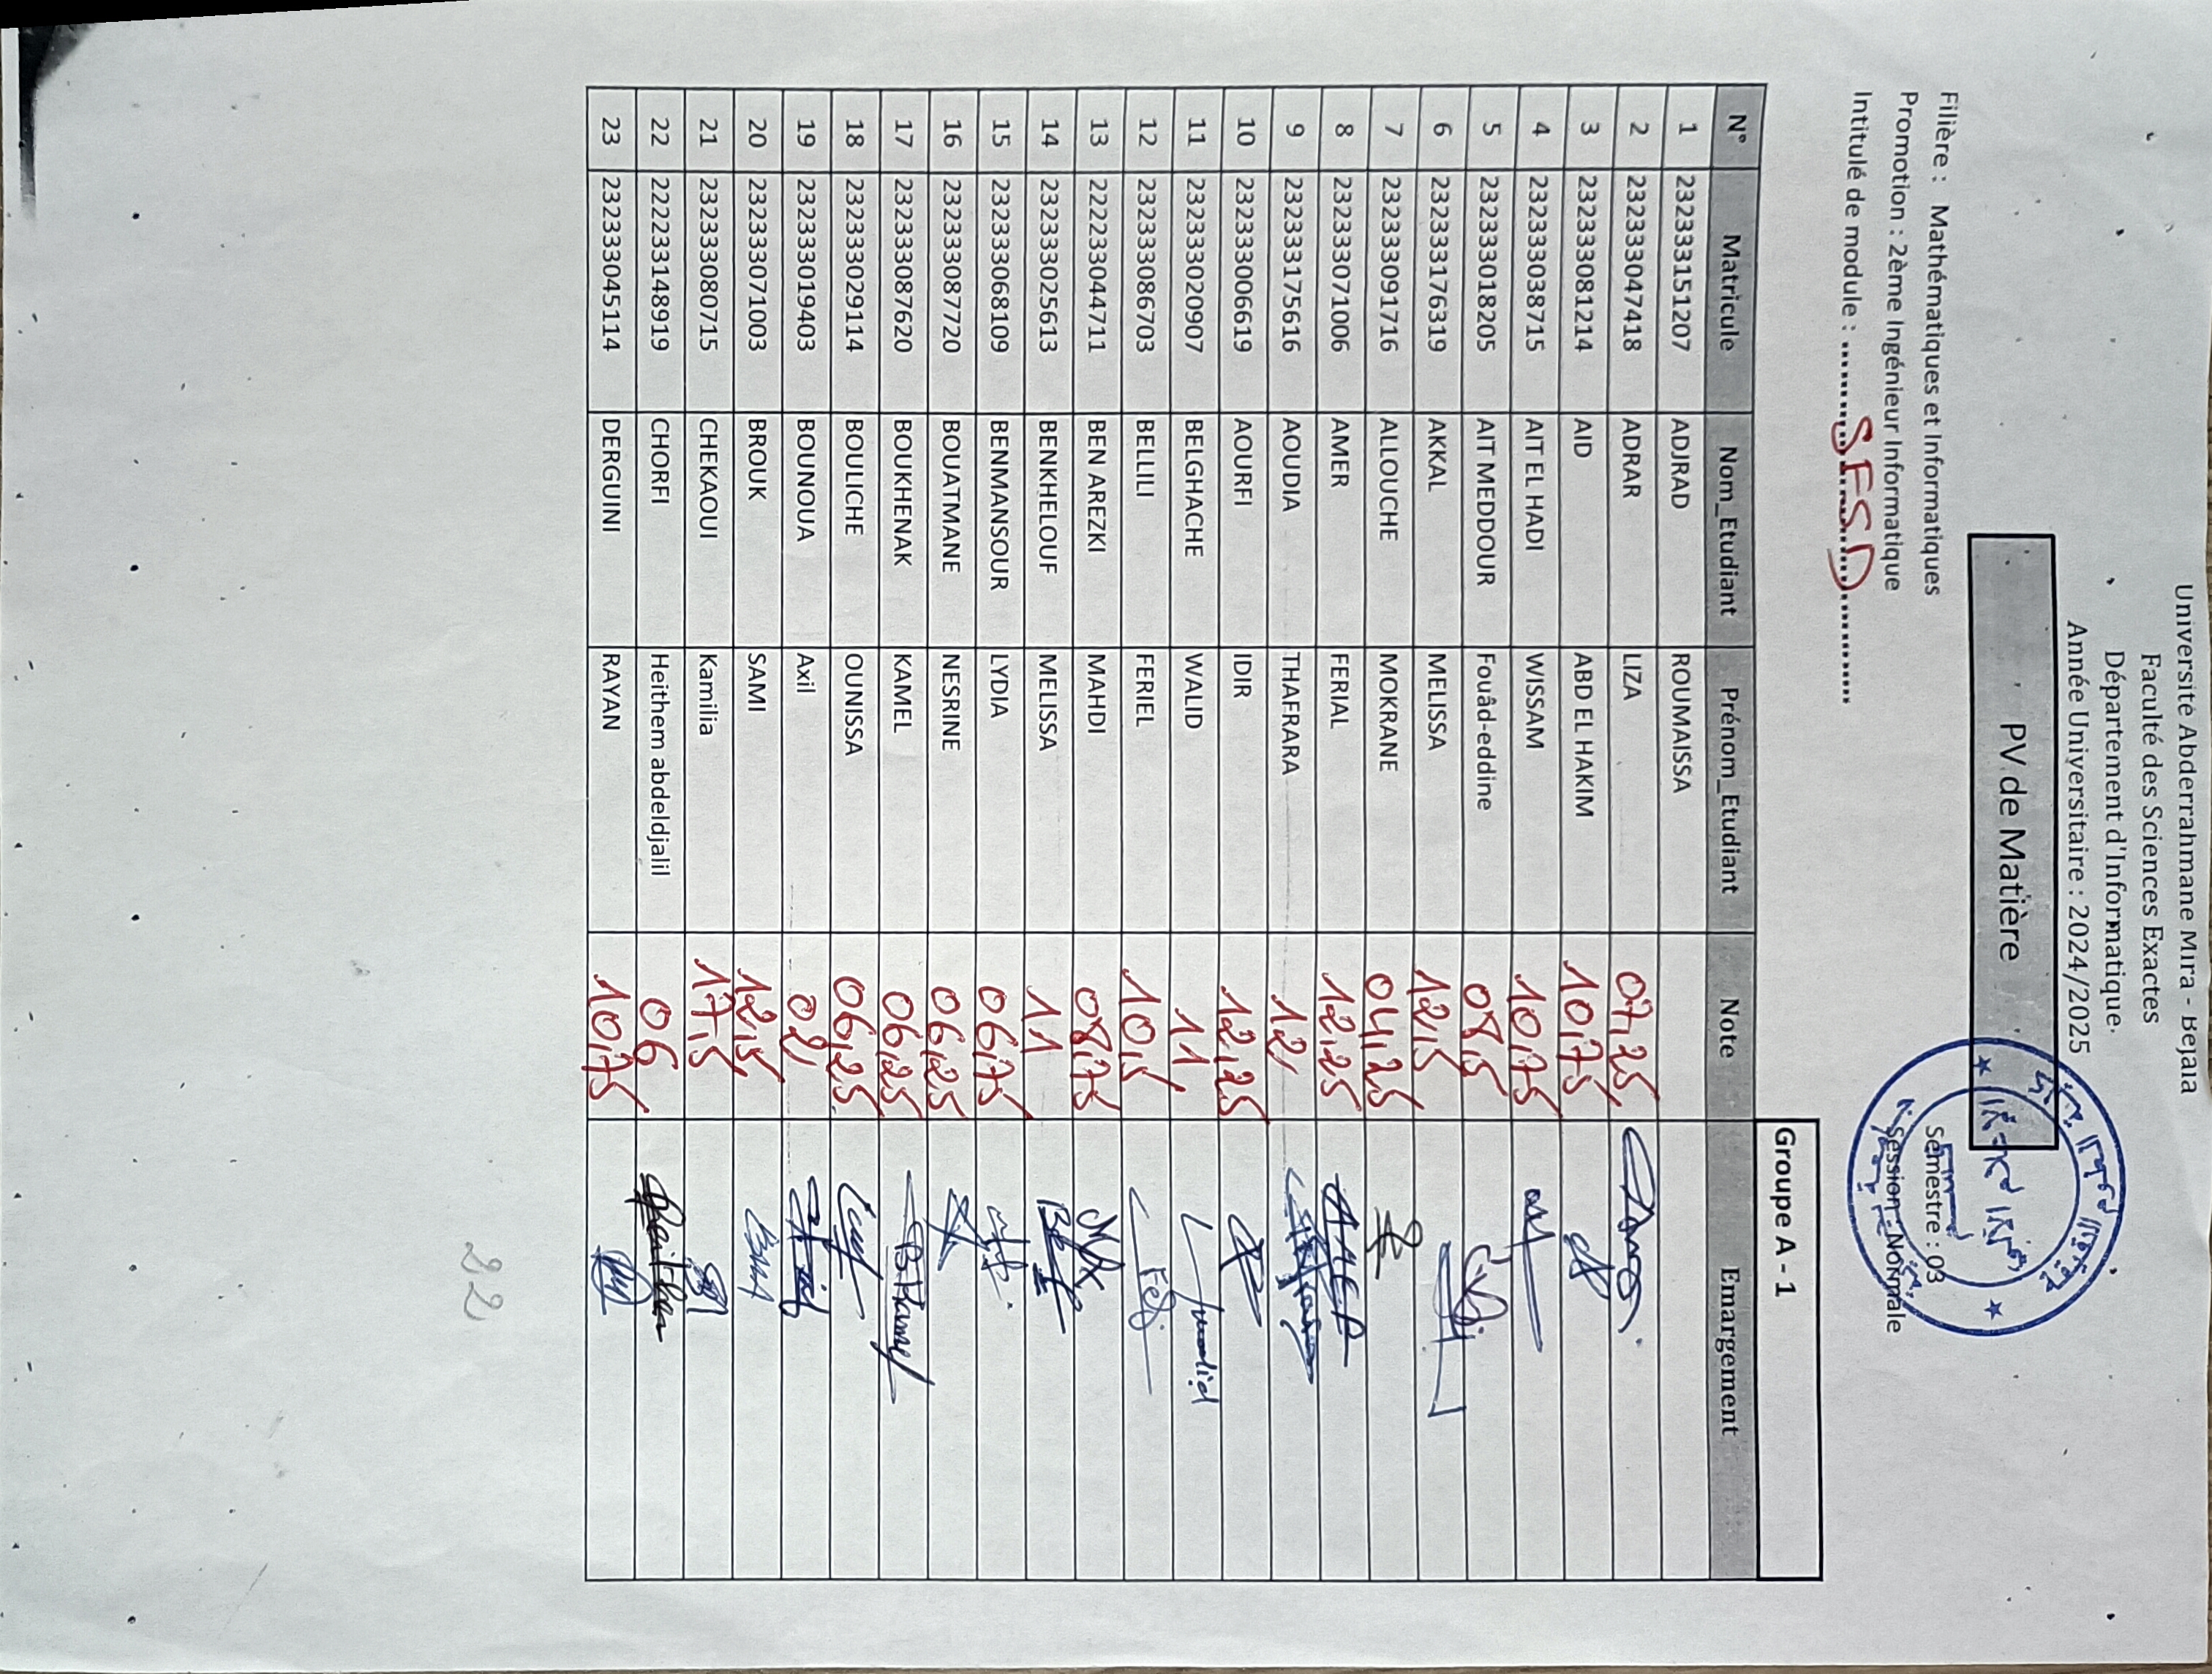 Université Abderrahmane Mira - Bejaia
Faculté des Sciences Exactes
Département d'Informatique.
Année Universitaire : 2024/2025
PV de Matière
Filière : Mathématiques et Informatiques
Semestre : 03
Promotion : 2ème Ingénieur Informatique
Session : Normale
Intitulé de module : ........SFSD............
Groupe A - 1
N° Matricule Nom_Etudiant Prénom_Etudiant Note Emargement
1 232333151207 ADJRAD ROUMAISSA
2 232333047418 ADRAR LIZA 07,25
3 232333081214 AID ABD EL HAKIM 10,75
4 232333038715 AIT EL HADI WISSAM 10,75
5 232333018205 AIT MEDDOUR Fouâd-eddine 08,5
6 232333176319 AKKAL MELISSA 12,5
7 232333091716 ALLOUCHE MOKRANE 04,25
8 232333071006 AMER FERIAL 12,25 AMER
9 232333175616 AOUDIA THAFRARA 12
10 232333006619 AOURFI IDIR 12,25
11 232333020907 BELGHACHE WALID 11 walid
12 232333086703 BELLILI FERIEL 10,5
13 222233044711 BEN AREZKI MAHDI 08,75
14 232333025613 BENKHELOUF MELISSA 11
15 232333068109 BENMANSOUR LYDIA 06,75
16 232333087720 BOUATMANE NESRINE 06,25
17 232333087620 BOUKHENAK KAMEL 06,25
18 232333029114 BOULICHE OUNISSA 06,25
19 232333019403 BOUNOUA Axil 02
20 232333071003 BROUK SAMI 12,5
21 232333080715 CHEKAOUI Kamilia 17,5
22 222233148919 CHORFI Heithem abdeldjalil 06
23 232333045114 DERGUINI RAYAN 10,75
22